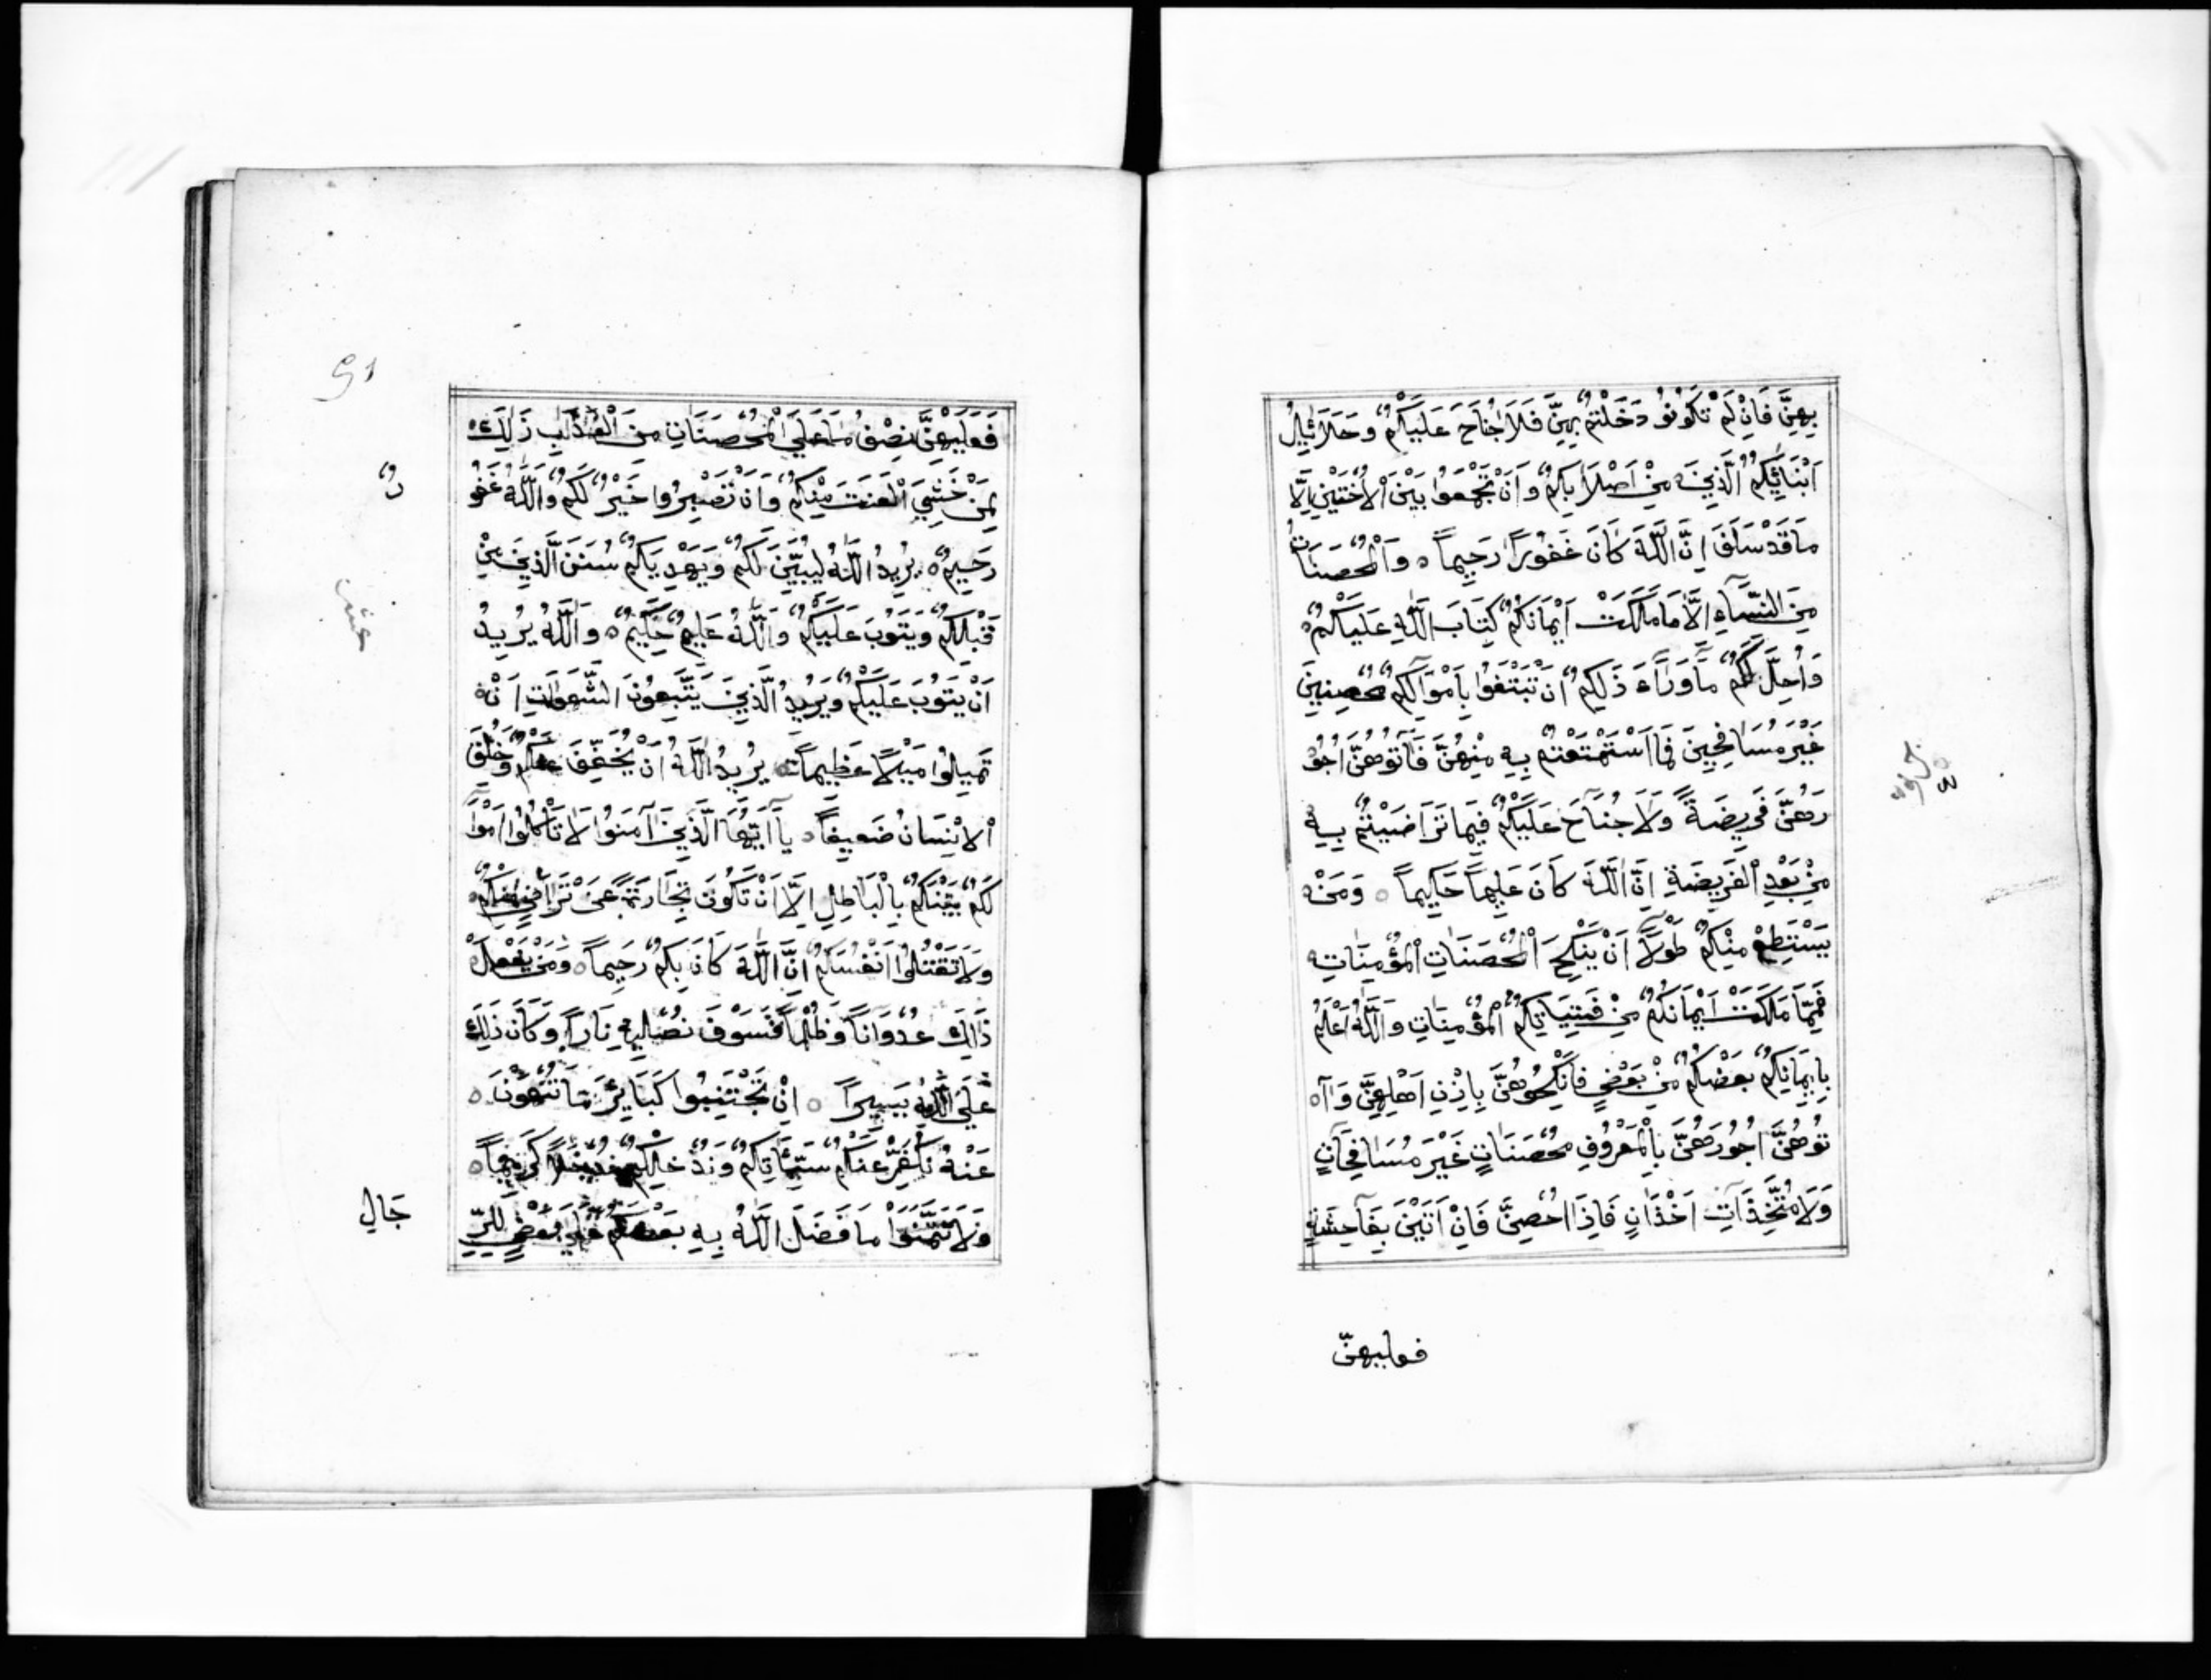 بِهِنَّ فَاِنْ لَمْ تَكُونُو دَخَلْتُمْ بِهِنَّ فَلَا جُنَاحَ عَلَيْكُمْ وَحَلَائِلُ
اَبْنَائِكُمُ الَّذِينَ مِنْ اَصْلَابِكُمْ وَاَنْ تَجْمَعُوا بَيْنَ الْاُخْتَيْنِ اِلَّا
مَا قَدْ سَلَفَ اِنَّ اللَّهَ كَانَ غَفُوراً رَحِيماً ۝ وَالْمُحْصَنَاتُ
مِنَ النِّسَاءِ اِلَّا مَا مَلَكَتْ اَيْمَانُكُمْ كِتَابَ اللَّهِ عَلَيْكُمْ
وَاُحِلَّ لَكُمْ مَا وَرَاءَ ذَلِكُمْ اَنْ تَبْتَغُوا بِاَمْوَالِكُمْ مُحْصِنِينَ
غَيْرَ مُسَافِحِينَ فَمَا اسْتَمْتَعْتُمْ بِهِ مِنْهُنَّ فَآتُوهُنَّ اُجُو
رَهُنَّ فَرِيضَةً وَلَا جُنَاحَ عَلَيْكُمْ فِيمَا تَرَاضَيْتُمْ بِهِ
مِنْ بَعْدِ الْفَرِيضَةِ اِنَّ اللَّهَ كَانَ عَلِيماً حَكِيماً ۝ وَمَنْ
يَسْتَطِعْ مِنْكُمْ طَوْلاً اَنْ يَنْكِحَ الْمُحْصَنَاتِ الْمُؤْمِنَاتِ
فَمِمَّا مَلَكَتْ اَيْمَانُكُمْ مِنْ فَتَيَاتِكُمُ الْمُؤْمِنَاتِ وَاللَّهُ اَعْلَمُ
بِاِيمَانِكُمْ بَعْضُكُمْ مِنْ بَعْضٍ فَانْكِحُوهُنَّ بِاِذْنِ اَهْلِهِنَّ وَآ
تُوهُنَّ اُجُورَهُنَّ بِالْمَعْرُوفِ مُحْصَنَاتٍ غَيْرَ مُسَافِحَاتٍ
وَلَا مُتَّخِذَاتِ اَخْدَانٍ فَاِذَا اُحْصِنَّ فَاِنْ اَتَيْنَ بِفَاحِشَةٍ
فعليهنّ
فَعَلَيْهِنَّ نِصْفُ مَا عَلَي الْمُحْصَنَاتِ مِنَ الْعَذَابِ ذَلِكَ
لِمَنْ خَشِيَ الْعَنَتَ مِنْكُمْ وَاَنْ تَصْبِرُوا خَيْرٌ لَكُمْ وَاللَّهُ غَفُو
رٌ
رَحِيمٌ ۝ يُرِيدُ اللَّهُ لِيُبَيِّنَ لَكُمْ وَيَهْدِيَكُمْ سُنَنَ الَّذِينَ مِنْ
قَبْلِكُمْ وَيَتُوبَ عَلَيْكُمْ وَاللَّهُ عَلِيمٌ حَكِيمٌ ۝ وَاللَّهُ يُرِيدُ
اَنْ يَتُوبَ عَلَيْكُمْ وَيُرِيدُ الَّذِينَ يَتَّبِعُونَ الشَّهَوَاتِ اَنْ
تَمِيلُوا مَيْلاً عَظِيماً ۝ يُرِيدُ اللَّهُ اَنْ يُخَفِّفَ عَنْكُمْ وَخُلِقَ
الْاِنْسَانُ ضَعِيفاً ۝ يَا اَيُّهَا الَّذِينَ آمَنُوا لَا تَأْكُلُوا اَمْوَا
لَكُمْ بَيْنَكُمْ بِالْبَاطِلِ اِلَّا اَنْ تَكُونَ تِجَارَةً عَنْ تَرَاضٍ مِنْكُمْ
وَلَا تَقْتُلُوا اَنْفُسَكُمْ اِنَّ اللَّهَ كَانَ بِكُمْ رَحِيماً ۝ وَمَنْ يَفْعَلْ
ذَالِكَ عُدْوَاناً وَظُلْماً فَسَوْفَ نُصْلِيهِ نَاراً وَكَانَ ذَلِكَ
عَلَي اللَّهِ يَسِيراً ۝ اِنْ تَجْتَنِبُوا كَبَائِرَ مَا تُنْهَوْنَ
عَنْهُ نُكَفِّرْ عَنْكُمْ سَيِّئَاتِكُمْ وَنُدْخِلْكُمْ مُدْخَلاً كَرِيماً ۝
وَلَا تَتَمَنَّوْا مَا فَضَّلَ اللَّهُ بِهِ بَعْضَكُمْ عَلَي بَعْضٍ لِلرِّ
جَالِ